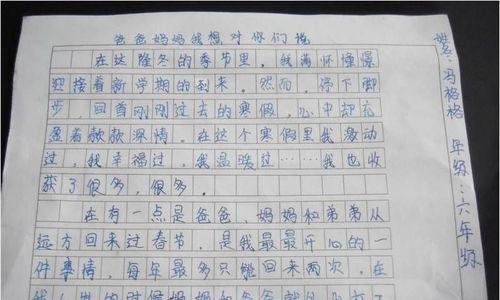 爸爸妈妈我想对你们说
在这隆冬的季节里，我满怀憧憬
迎接着新学期的到来。然而，停下脚
步，回首刚刚过去的寒假，心中却充
盈着款款深情。在这个寒假里我激动
过，我幸福过，我温暖过……我也收
获了很多，很多。
在有一点是爸爸、妈妈和弟弟从
远方回来过春节，是我最最开心的一
件事情，每年最多只能回来两次，在
我 的时候妈妈和爸爸就
姓名：冯格格 年级：六年级